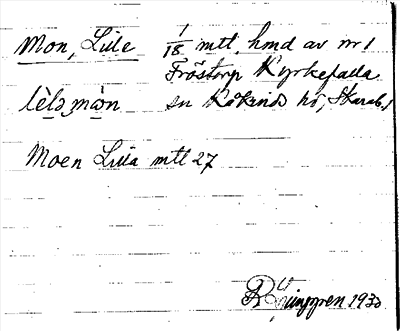 Mon, Lille 1/18 mtl, hmd av nr 1
Fröstorp Kyrkefalla
lèlɜ mòn sn Kåkinds hd, Skarab.l
Moen Lilla mtl 27
Ljunggren 1930